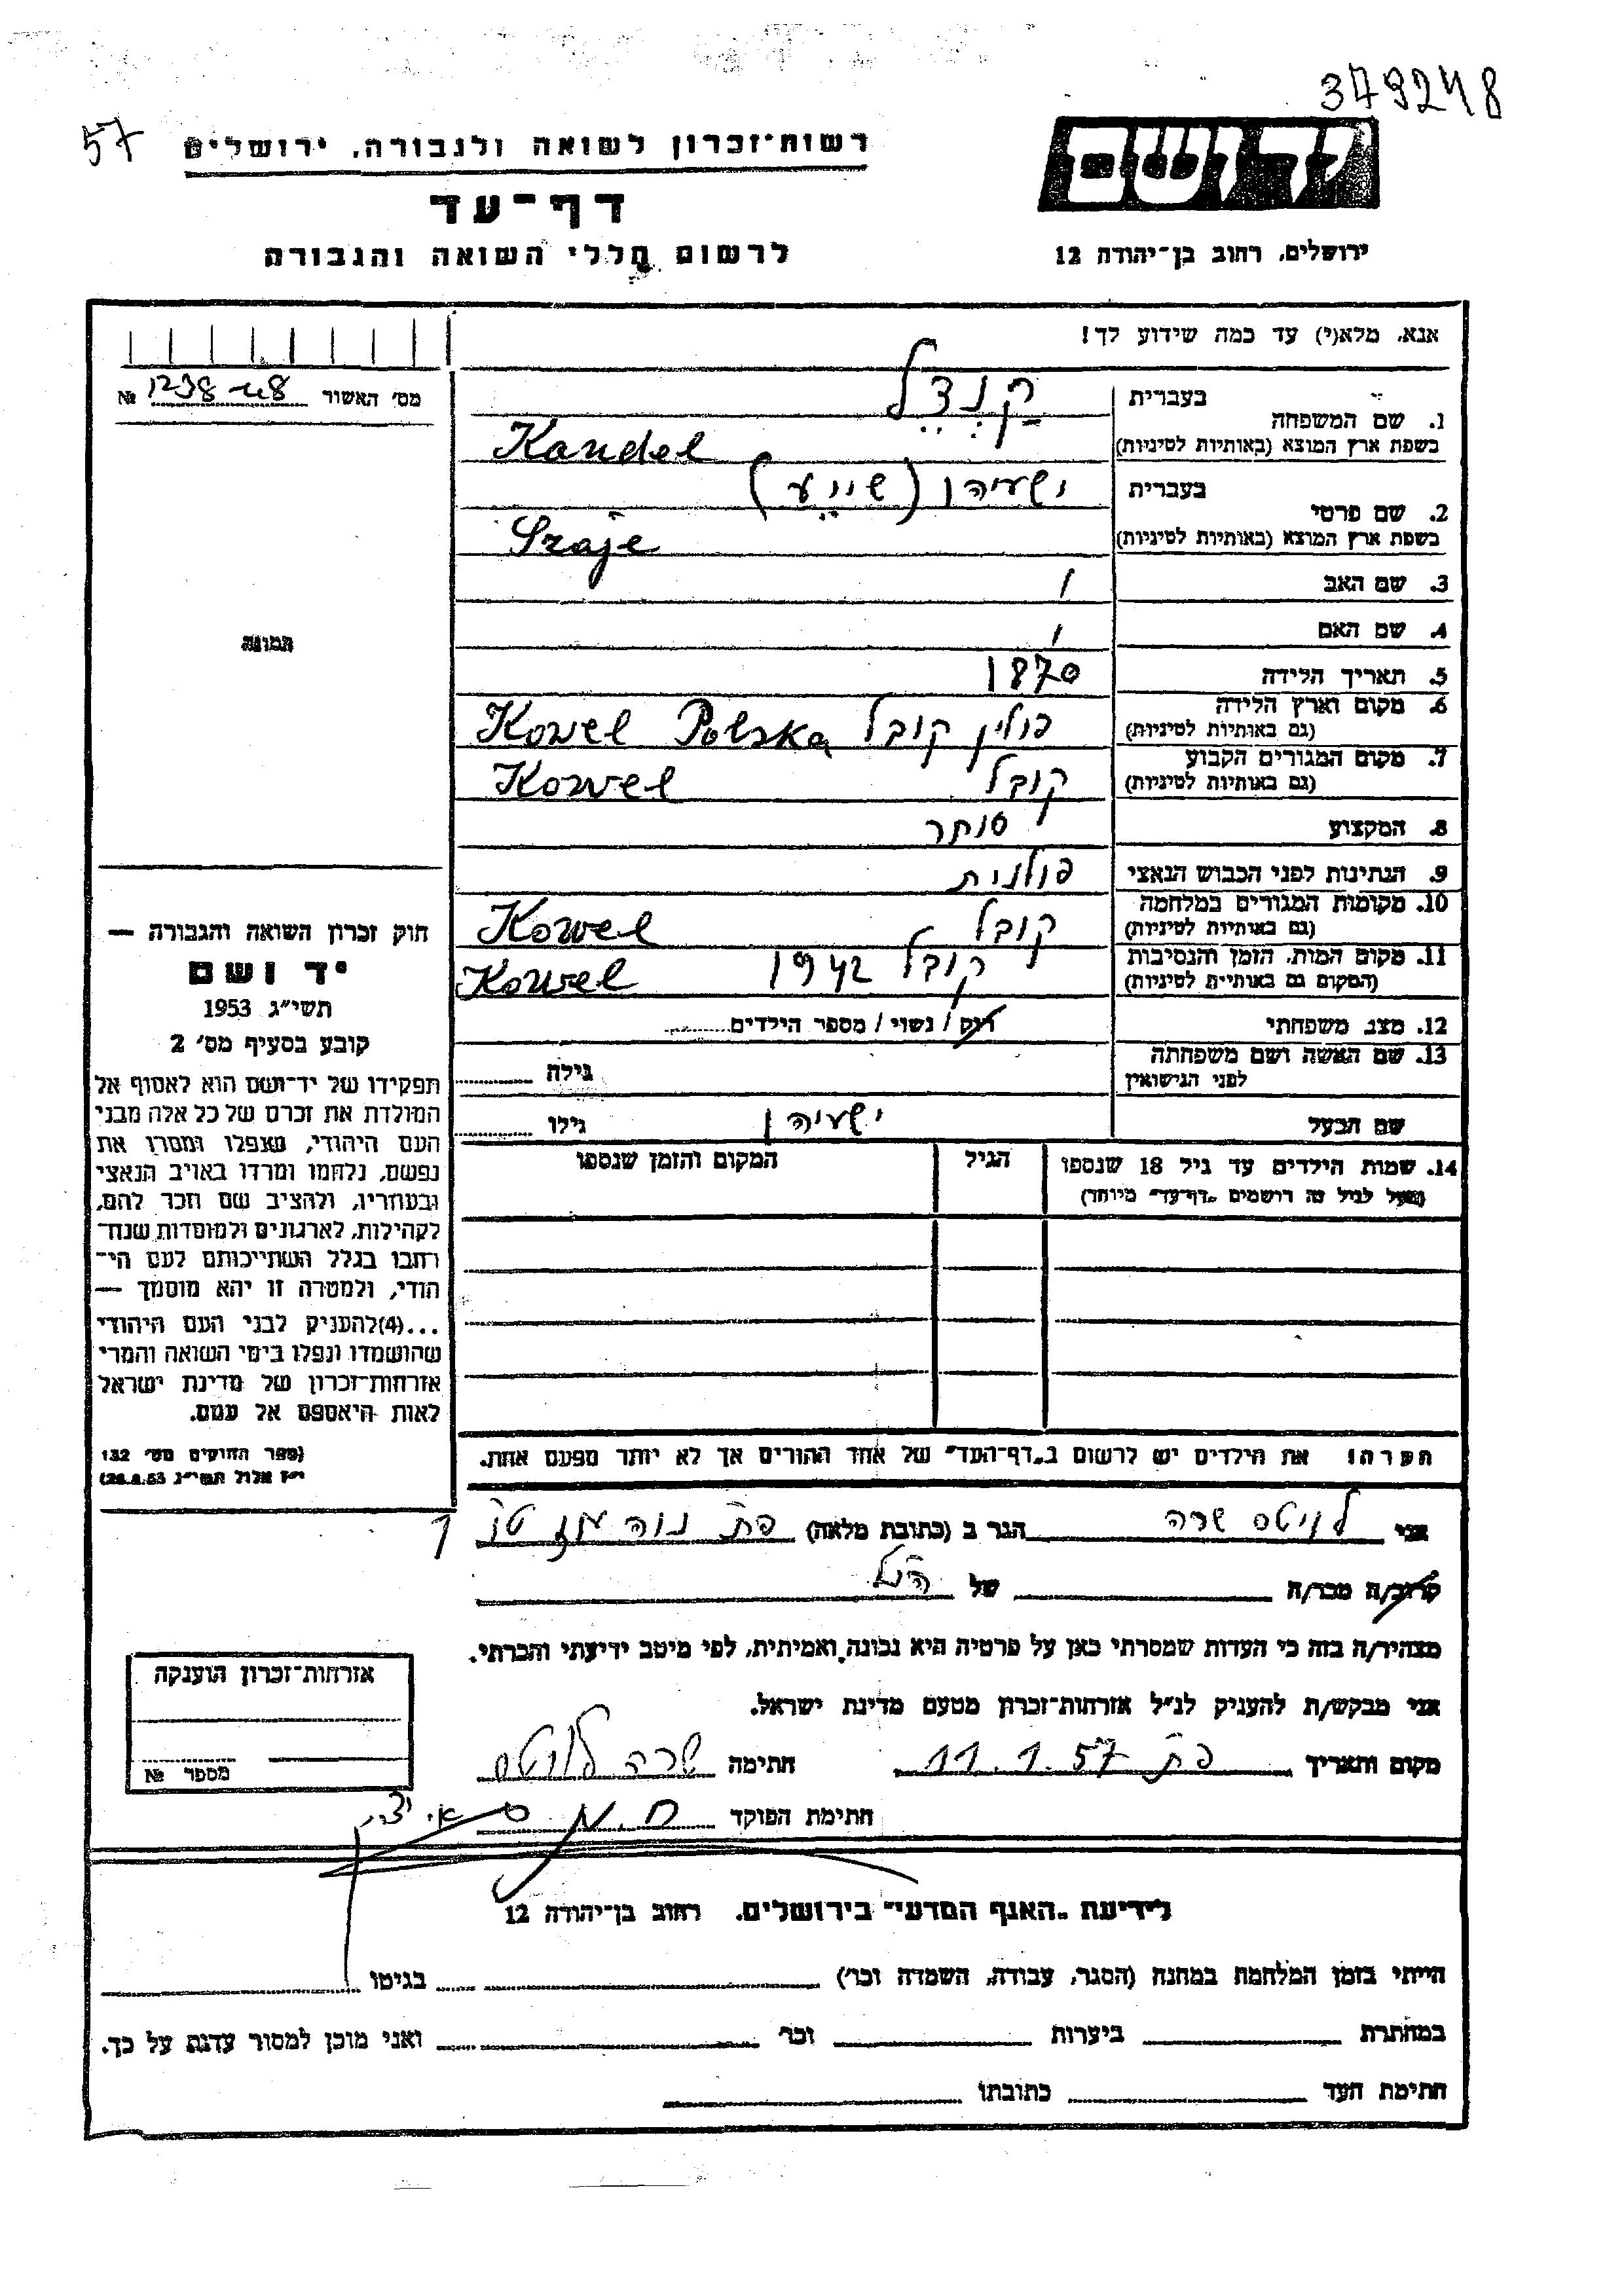 379248
57
רשות־זכרון לשואה ולגבורה, ירושלים
ידושם
דף־עד
לרשום חללי השואה והגבורה
ירושלים, רחוב בן־יהודה 12
אנא, מלא(י) עד כמה שידוע לך!
מס׳ האשור № 1238
1. שם המשפחה
בעברית קנדל
בשפת ארץ המוצא (באותיות לטיניות) Kandel
2. שם פרטי
בעברית ישעיהו (שייע)
בשפת ארץ המוצא (באותיות לטיניות) Szaje
3. שם האב /
4. שם האם /
תמונה
5. תאריך הלידה 1870
6. מקום וארץ הלידה
(גם באותיות לטיניות) פולין קובל Kowel Polska
7. מקום המגורים הקבוע
(גם באותיות לטיניות) קובל Kowel
8. המקצוע סוחר
9. הנתינות לפני הכבוש הנאצי פולנית
10. מקומות המגורים במלחמה
(גם באותיות לטיניות) קובל Kowel
11. מקום המות, הזמן והנסיבות
(המקום גם באותיות לטיניות) קובל 1942 Kowel
12. מצב משפחתי רווק / נשוי / מספר הילדים
13. שם האשה ושם משפחתה
לפני הנישואין גילה
שם הבעל ישעיהו גילו
14. שמות הילדים עד גיל 18 שנספו הגיל המקום והזמן שנספו
(מעל לגיל זה רושמים „דף־עד״ מיוחד)
חוק זכרון השואה והגבורה —
יד ושם
תשי״ג 1953
קובע בסעיף מס׳ 2
תפקידו של יד־ושם הוא לאסוף אל
המולדת את זכרם של כל אלה מבני
העם היהודי, שנפלו ומסרו את
נפשם, נלחמו ומרדו באויב הנאצי
ובעוזריו, ולהציב שם וזכר להם,
לקהילות, לארגונים ולמוסדות שנח־
רבו בגלל השתייכותם לעם הי־
הודי, ולמטרה זו יהא מוסמך —
...(4) להעניק לבני העם היהודי
שהושמדו ונפלו בימי השואה והמרי
אזרחות־זכרון של מדינת ישראל
לאות היאספם אל עמם.
(ספר החוקים מס׳ 132
י״ז אלול תשי״ג 28.8.53)
הערה: את הילדים יש לרשום ב„דף־העד״ של אחד ההורים אך לא יותר מפעם אחת.
אני לויטס שרה הגר ב (כתובת מלאה) פת נוה
קרוב/ה מכר/ה של הנ״ל
מצהיר/ה בזה כי העדות שמסרתי כאן על פרטיה היא נכונה ואמיתית, לפי מיטב ידיעתי והכרתי.
אני מבקש/ת להעניק לנ״ל אזרחות־זכרון מטעם מדינת ישראל.
מקום ותאריך פת 11.1.57 חתימה שרה לויטס
חתימת הפוקד
אזרחות־זכרון הוענקה
מספר №
לידיעת „האגף המדעי״ בירושלים, רחוב בן־יהודה 12
הייתי בזמן המלחמה במחנה (הסגר, עבודה, השמדה וכו׳) בגיטו
במחתרת ביערות וכו׳ ואני מוכן למסור עדות על כך.
חתימת העד כתובתו